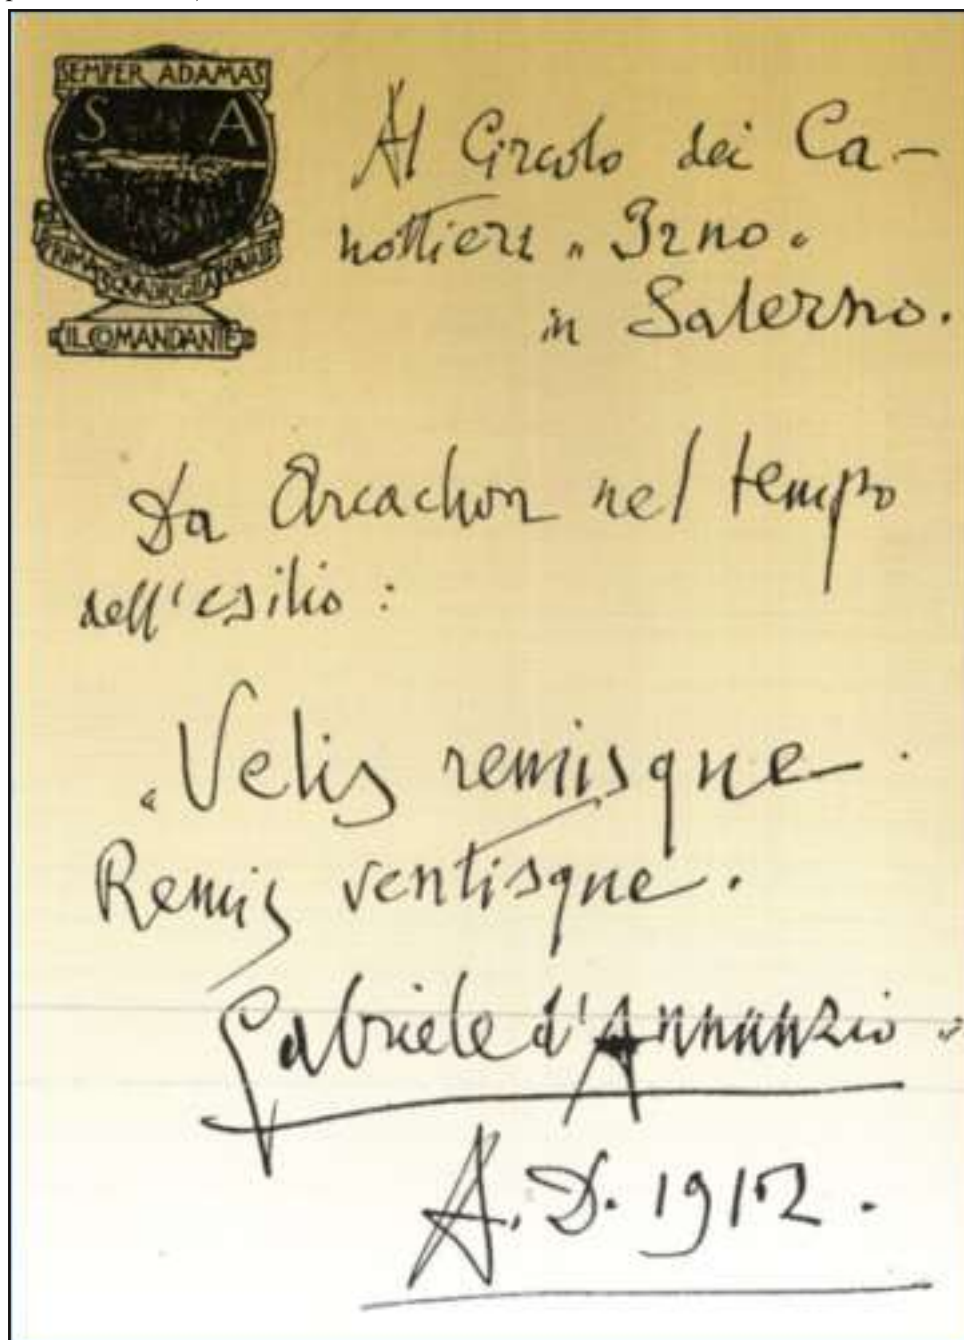 SEMPER ADAMAS
S A
PRIMA SQUADRIGLIA NAVALE
IL COMANDANTE
Al Circolo dei Ca-
nottieri "Irno"
in Salerno.
Da Arcachon nel tempo
dell'esilio:
"Velis remisque.
Remis ventisque.
Gabriele d'Annunzio"
A.D. 1912.